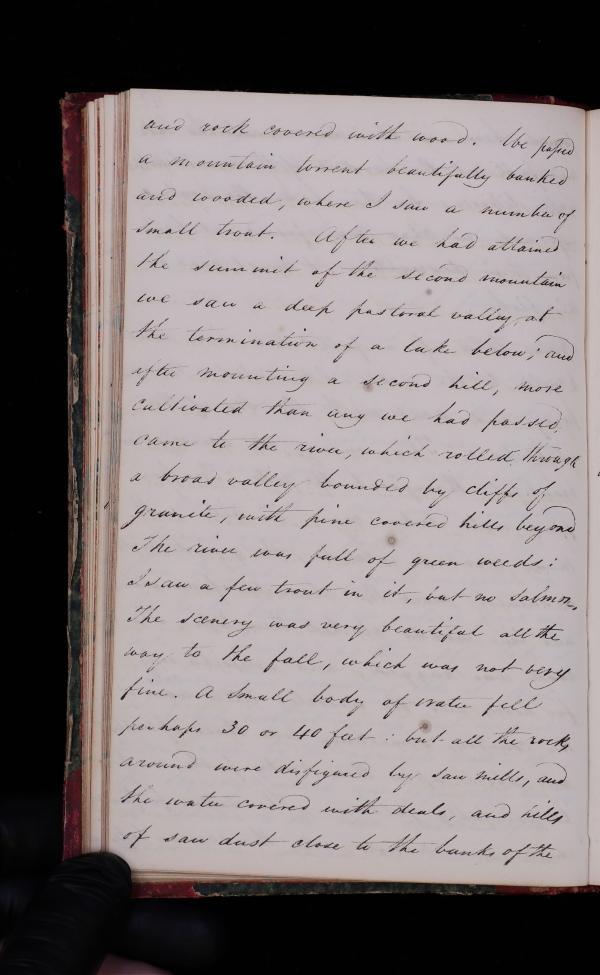 and rock covered with wood. We passed
a mountain torrent beautifully banked
and wooded, where I saw a number of
small trout. After we had attained
the summit of the second mountain
we saw a deep pastoral valley at
the termination of a lake below; and
after mounting a second hill, more
cultivated than any we had passed,
came to the river, which rolled through
a broad valley bounded by cliffs of
granite, with pine covered hills beyond
The river was full of green weeds:
I saw a few trout in it, but no salmon.
The scenery was very beautiful all the
way to the fall, which was not very
fine. A small body of water fell
perhaps 30 or 40 feet: but all the rocks
around were disfigured by saw mills, and
the water covered with deals, and hills
of saw dust close to the banks of the